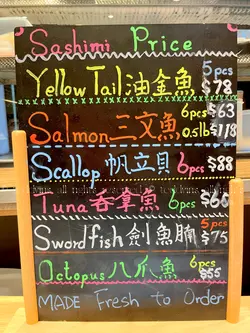 Sashimi Price
Yellow Tail 油金魚 5pcs $78
Salmon 三文魚 6pcs $63
0.5lb $118
Scallop 帆立貝 6pcs $88
Tuna 吞拿魚 6pcs $66
Swordfish 劍魚腩 5pcs $75
Octopus 八爪魚 6pcs $55
MADE Fresh to Order